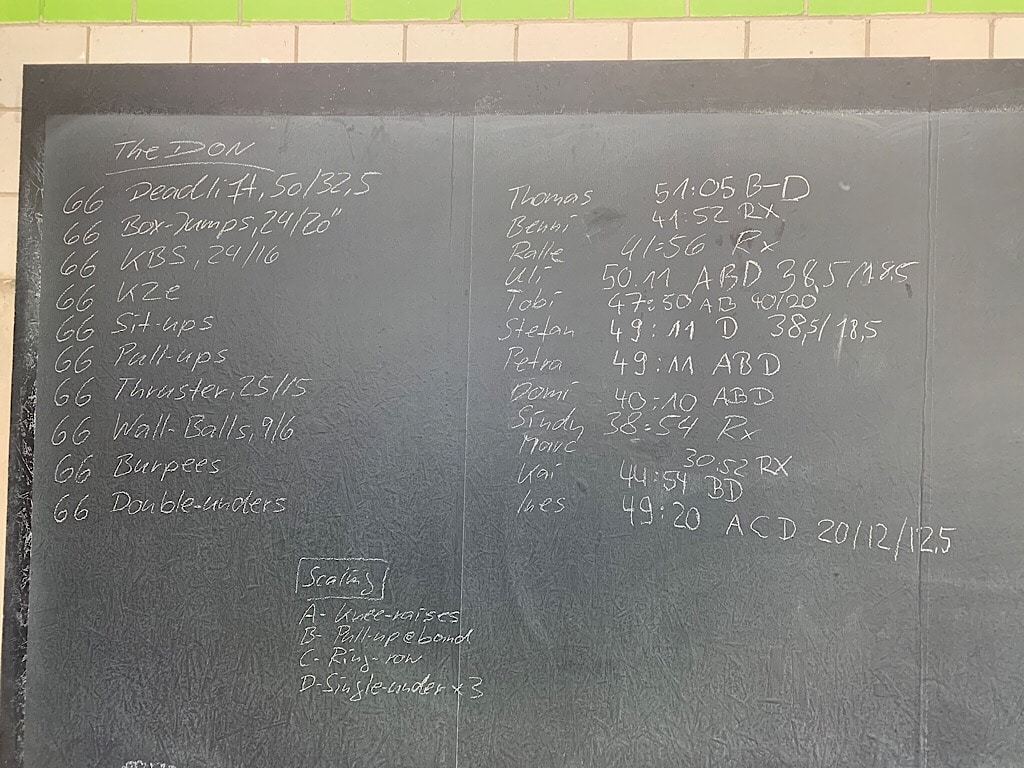 The DON
66 Deadlift, 50/32,5
66 Box-Jumps, 24/20"
66 KBS, 24/16
66 K2e
66 Sit-ups
66 Pull-ups
66 Thruster, 25/15
66 Wall-Balls, 9/6
66 Burpees
66 Double-unders
Thomas 51:05 B-D
Benni 41:52 RX
Ralle 41:56 Rx
Uli 50.11 ABD 38,5/18,5
Tobi 47:50 AB 40/20
Stefan 49:11 D 38,5/18,5
Petra 49:11 ABD
Domi 40:10 ABD
Sindy 38:54 Rx
Marc 30:52 RX
Kai 44:54 BD
Ines 49:20 ACD 20/12/12,5
Scaling
A- Knee-raises
B- Pull-up@band
C- Ring-row
D-Single-under x 3